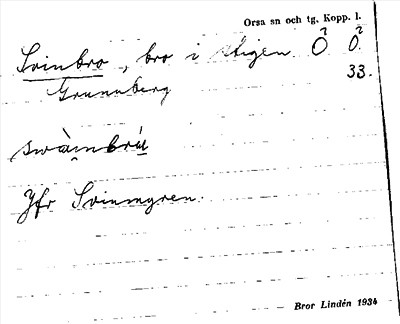 Orsa sn och tg. Kopp. l.
Svinbro, bro i stigen Ö Ö.
Grunuberg 33.
swàmbrú
Jfr Svinmyren.
Bror Lindén 1934